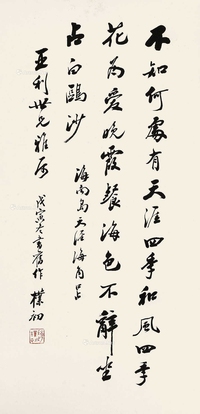 不知何處有天涯四季和風四季
花為愛晚霞餐海色不辭坐
占白鷗沙
海南島天涯海角占
亞利世兄雅屬
戊寅冬書舊作 樸初